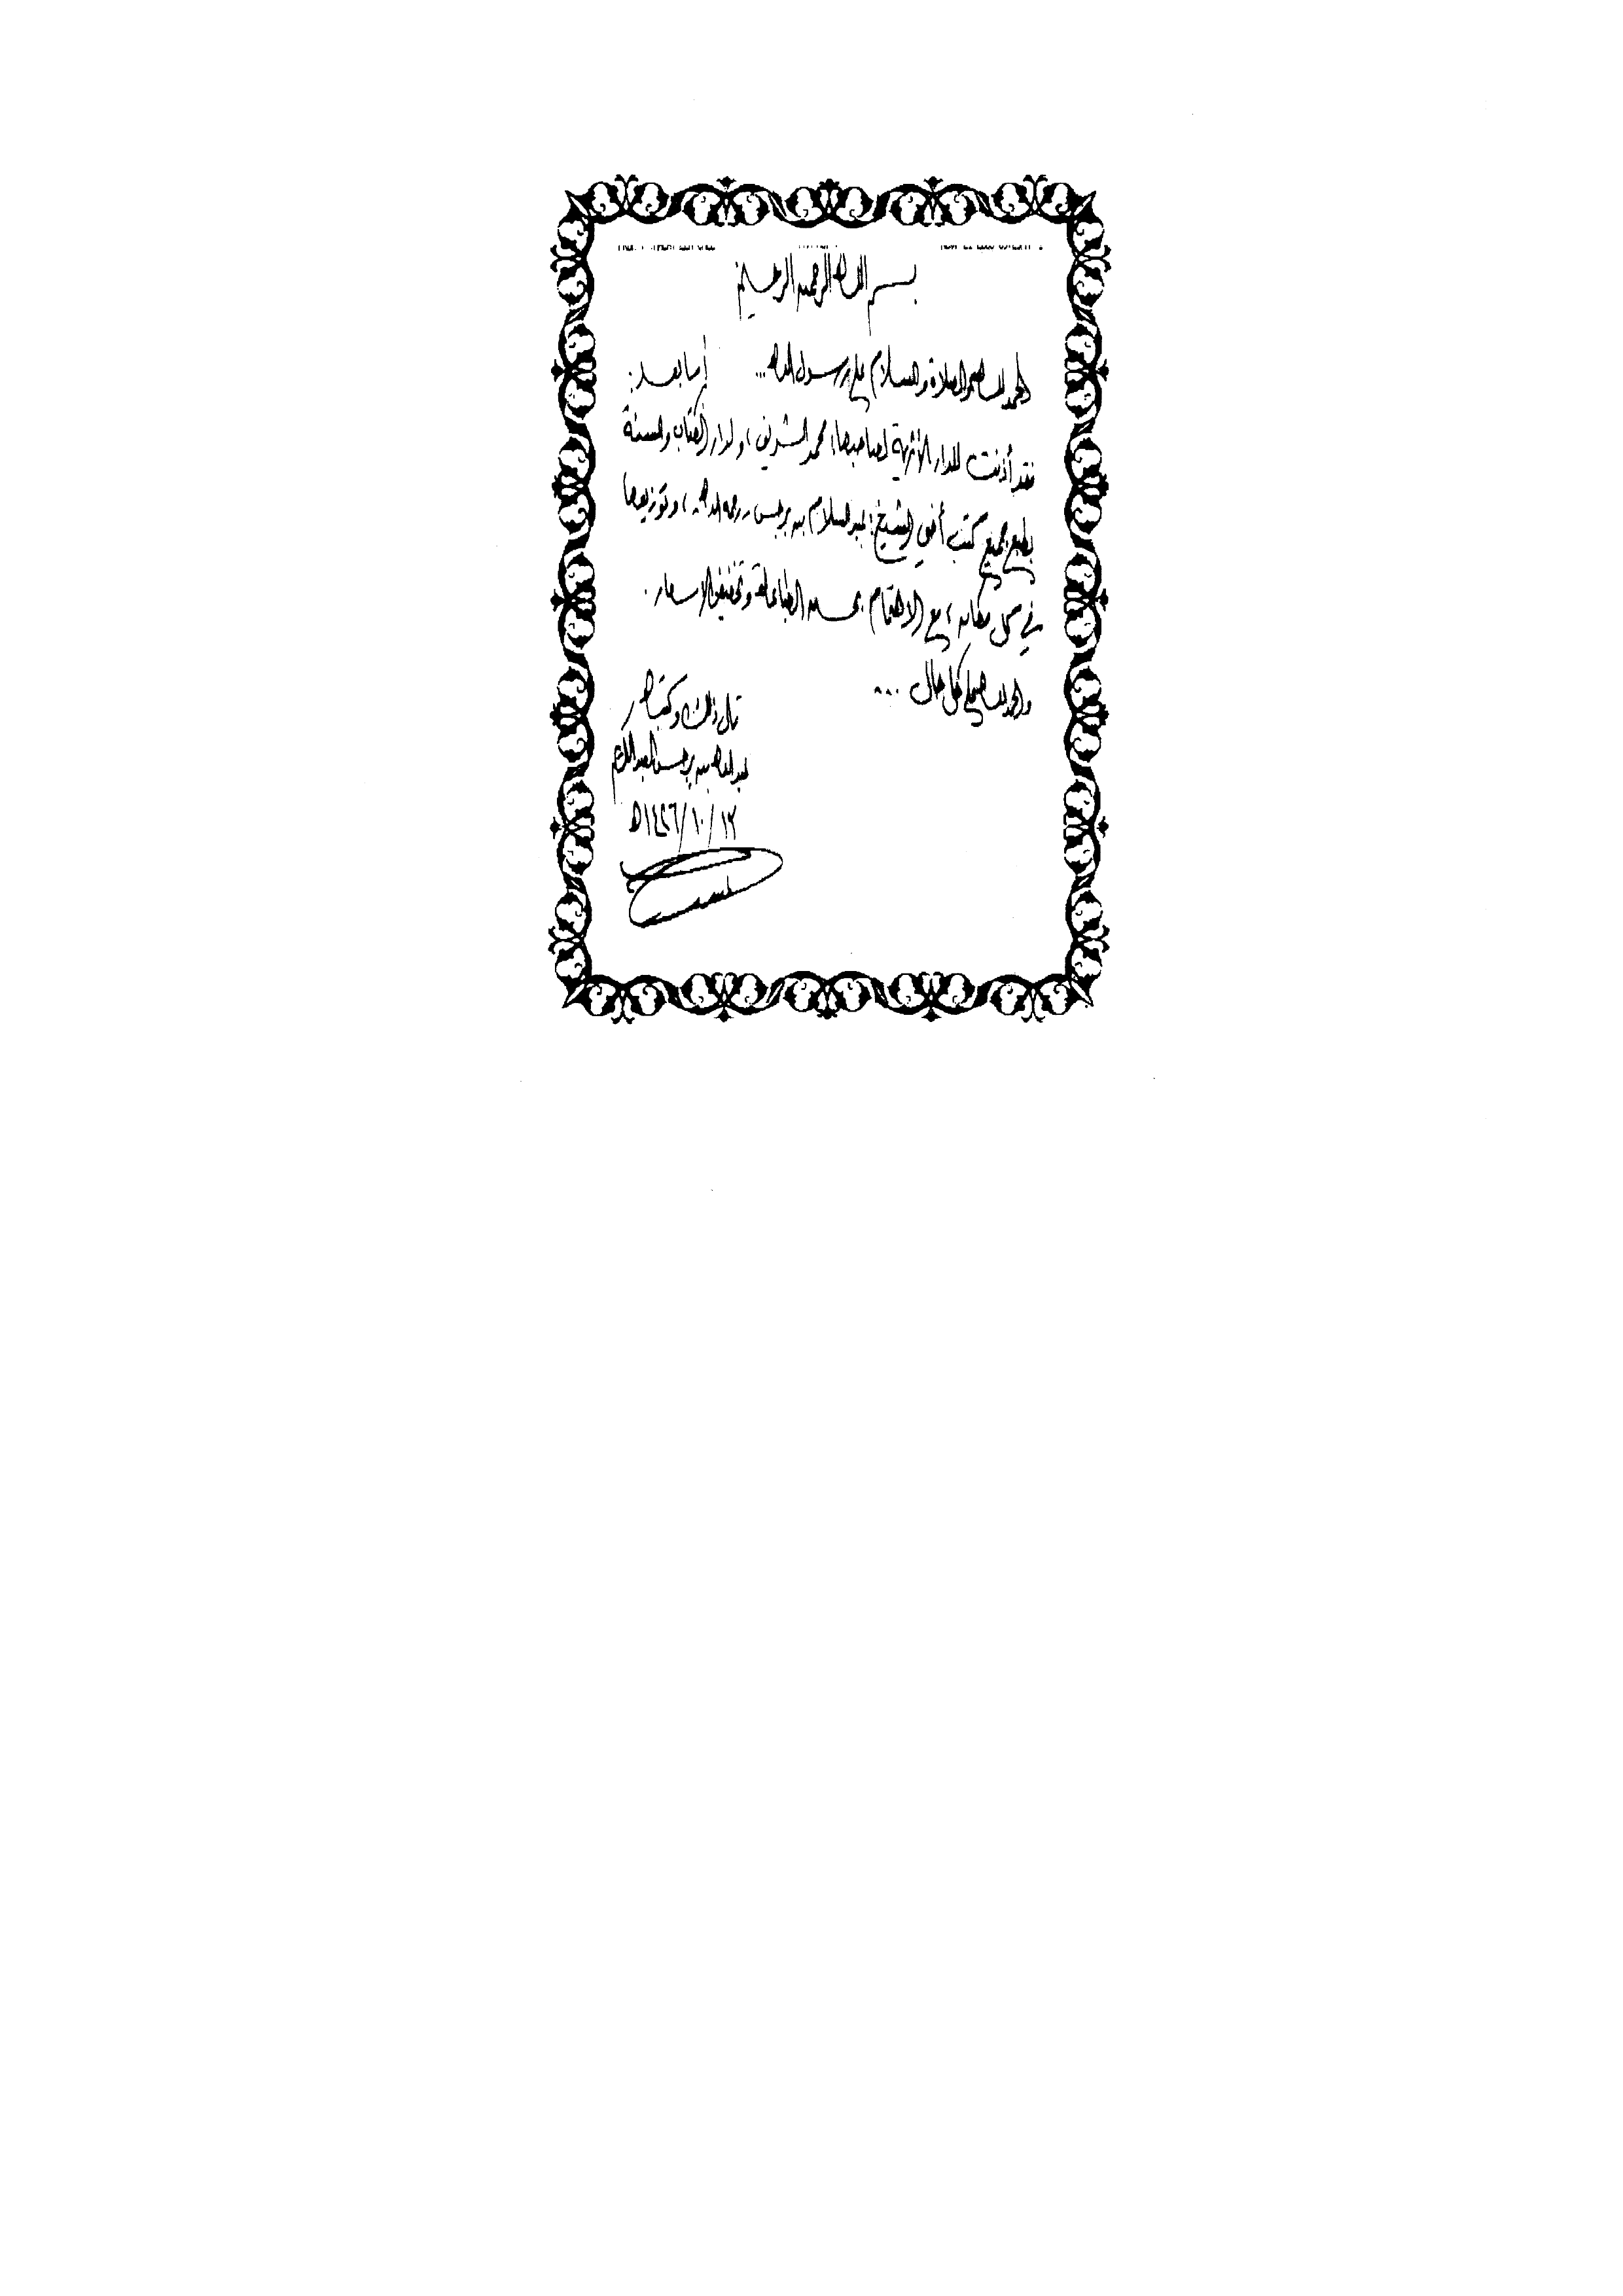 بسم الله الرحمن الرحيم
الحمد لله والصلاة والسلام على رسول الله... أما بعد:
فقد أذنت للدار الأثرية لصاحبها: محمد الشريف، ولدار الكتاب والسنة
بطبع جميع كتب أخي الشيخ: عبد السلام بن برجس - رحمه الله -، وتوزيعها
في كل مكان، مع الاهتمام بحسن الطباعة وتخفيض الأسعار.
والحمد لله على كل حال ...
قال ذلك وكتبه
عبد الله بن برجس العبد الكريم
١٢/١٠/١٤٢٦هـ